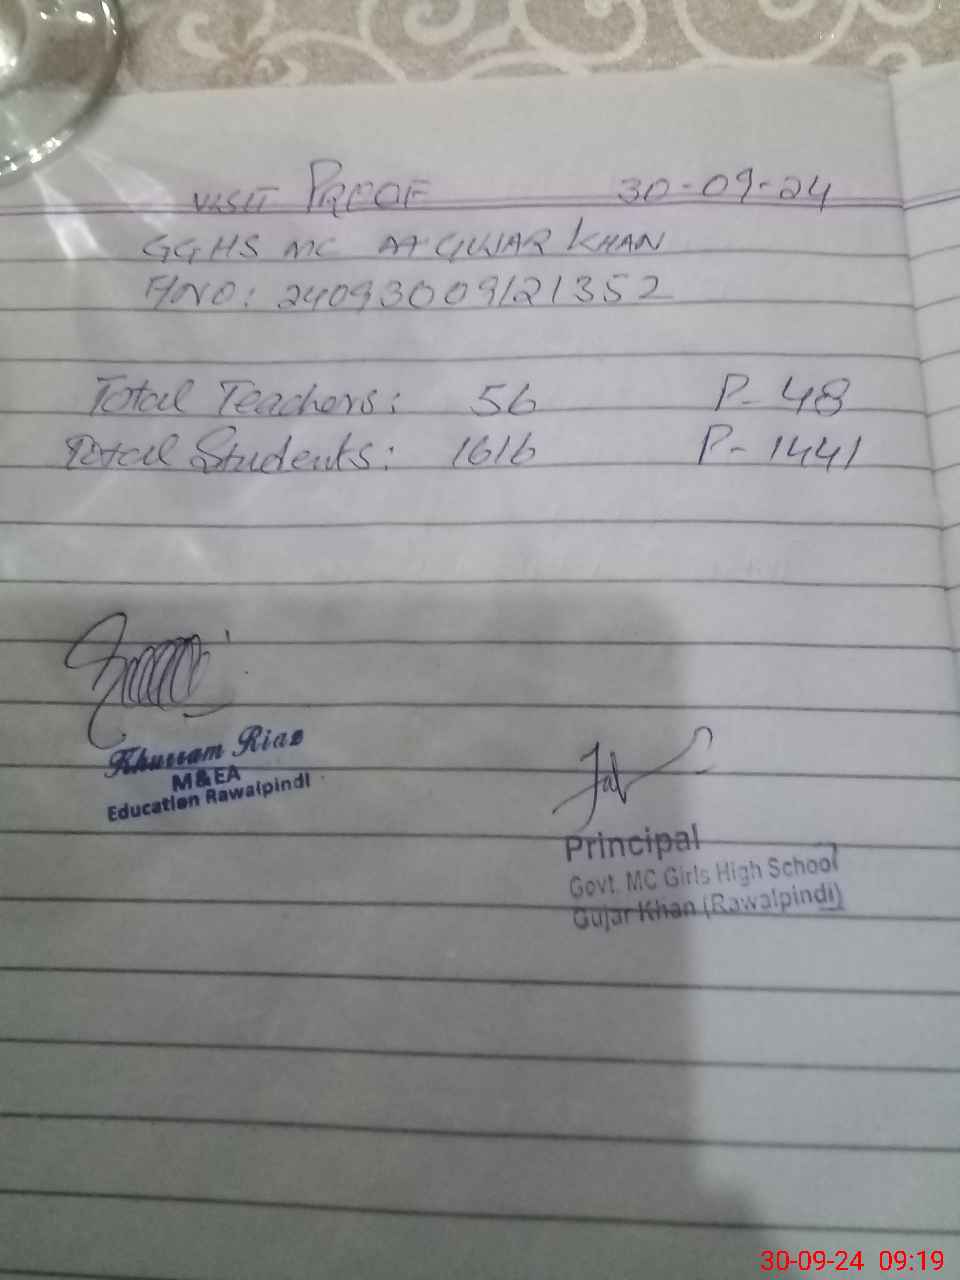 VISIT PROOF 30-09-24
GGHS MC AT GUJAR KHAN
A/NO: 24093009121352
Total Teachers: 56 P- 48
Total Students: 1616 P- 1441
Khurram Riaz
M&EA
Education Rawalpindi
Principal
Govt. MC Girls High School
Gujar Khan (Rawalpindi)
30-09-24 09:19